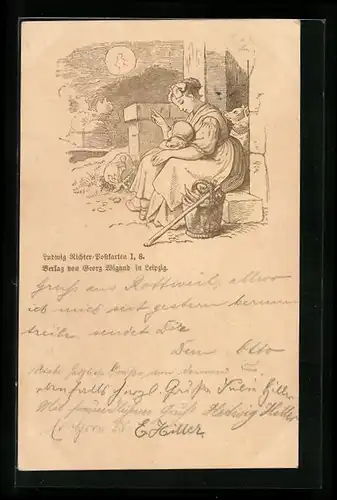 Ludwig Richter-Postkarten I, 8.
Verlag von Georg Wigand in Leipzig.
Gruß aus Rottweil, allwo
ich mich seit gestern herum
treibe sendet Dir
Dein Otto
ebenfalls herzl. Grüße Dein Hiller
Mit freundlichem Gruß Hedwig Hiller
E. Hiller